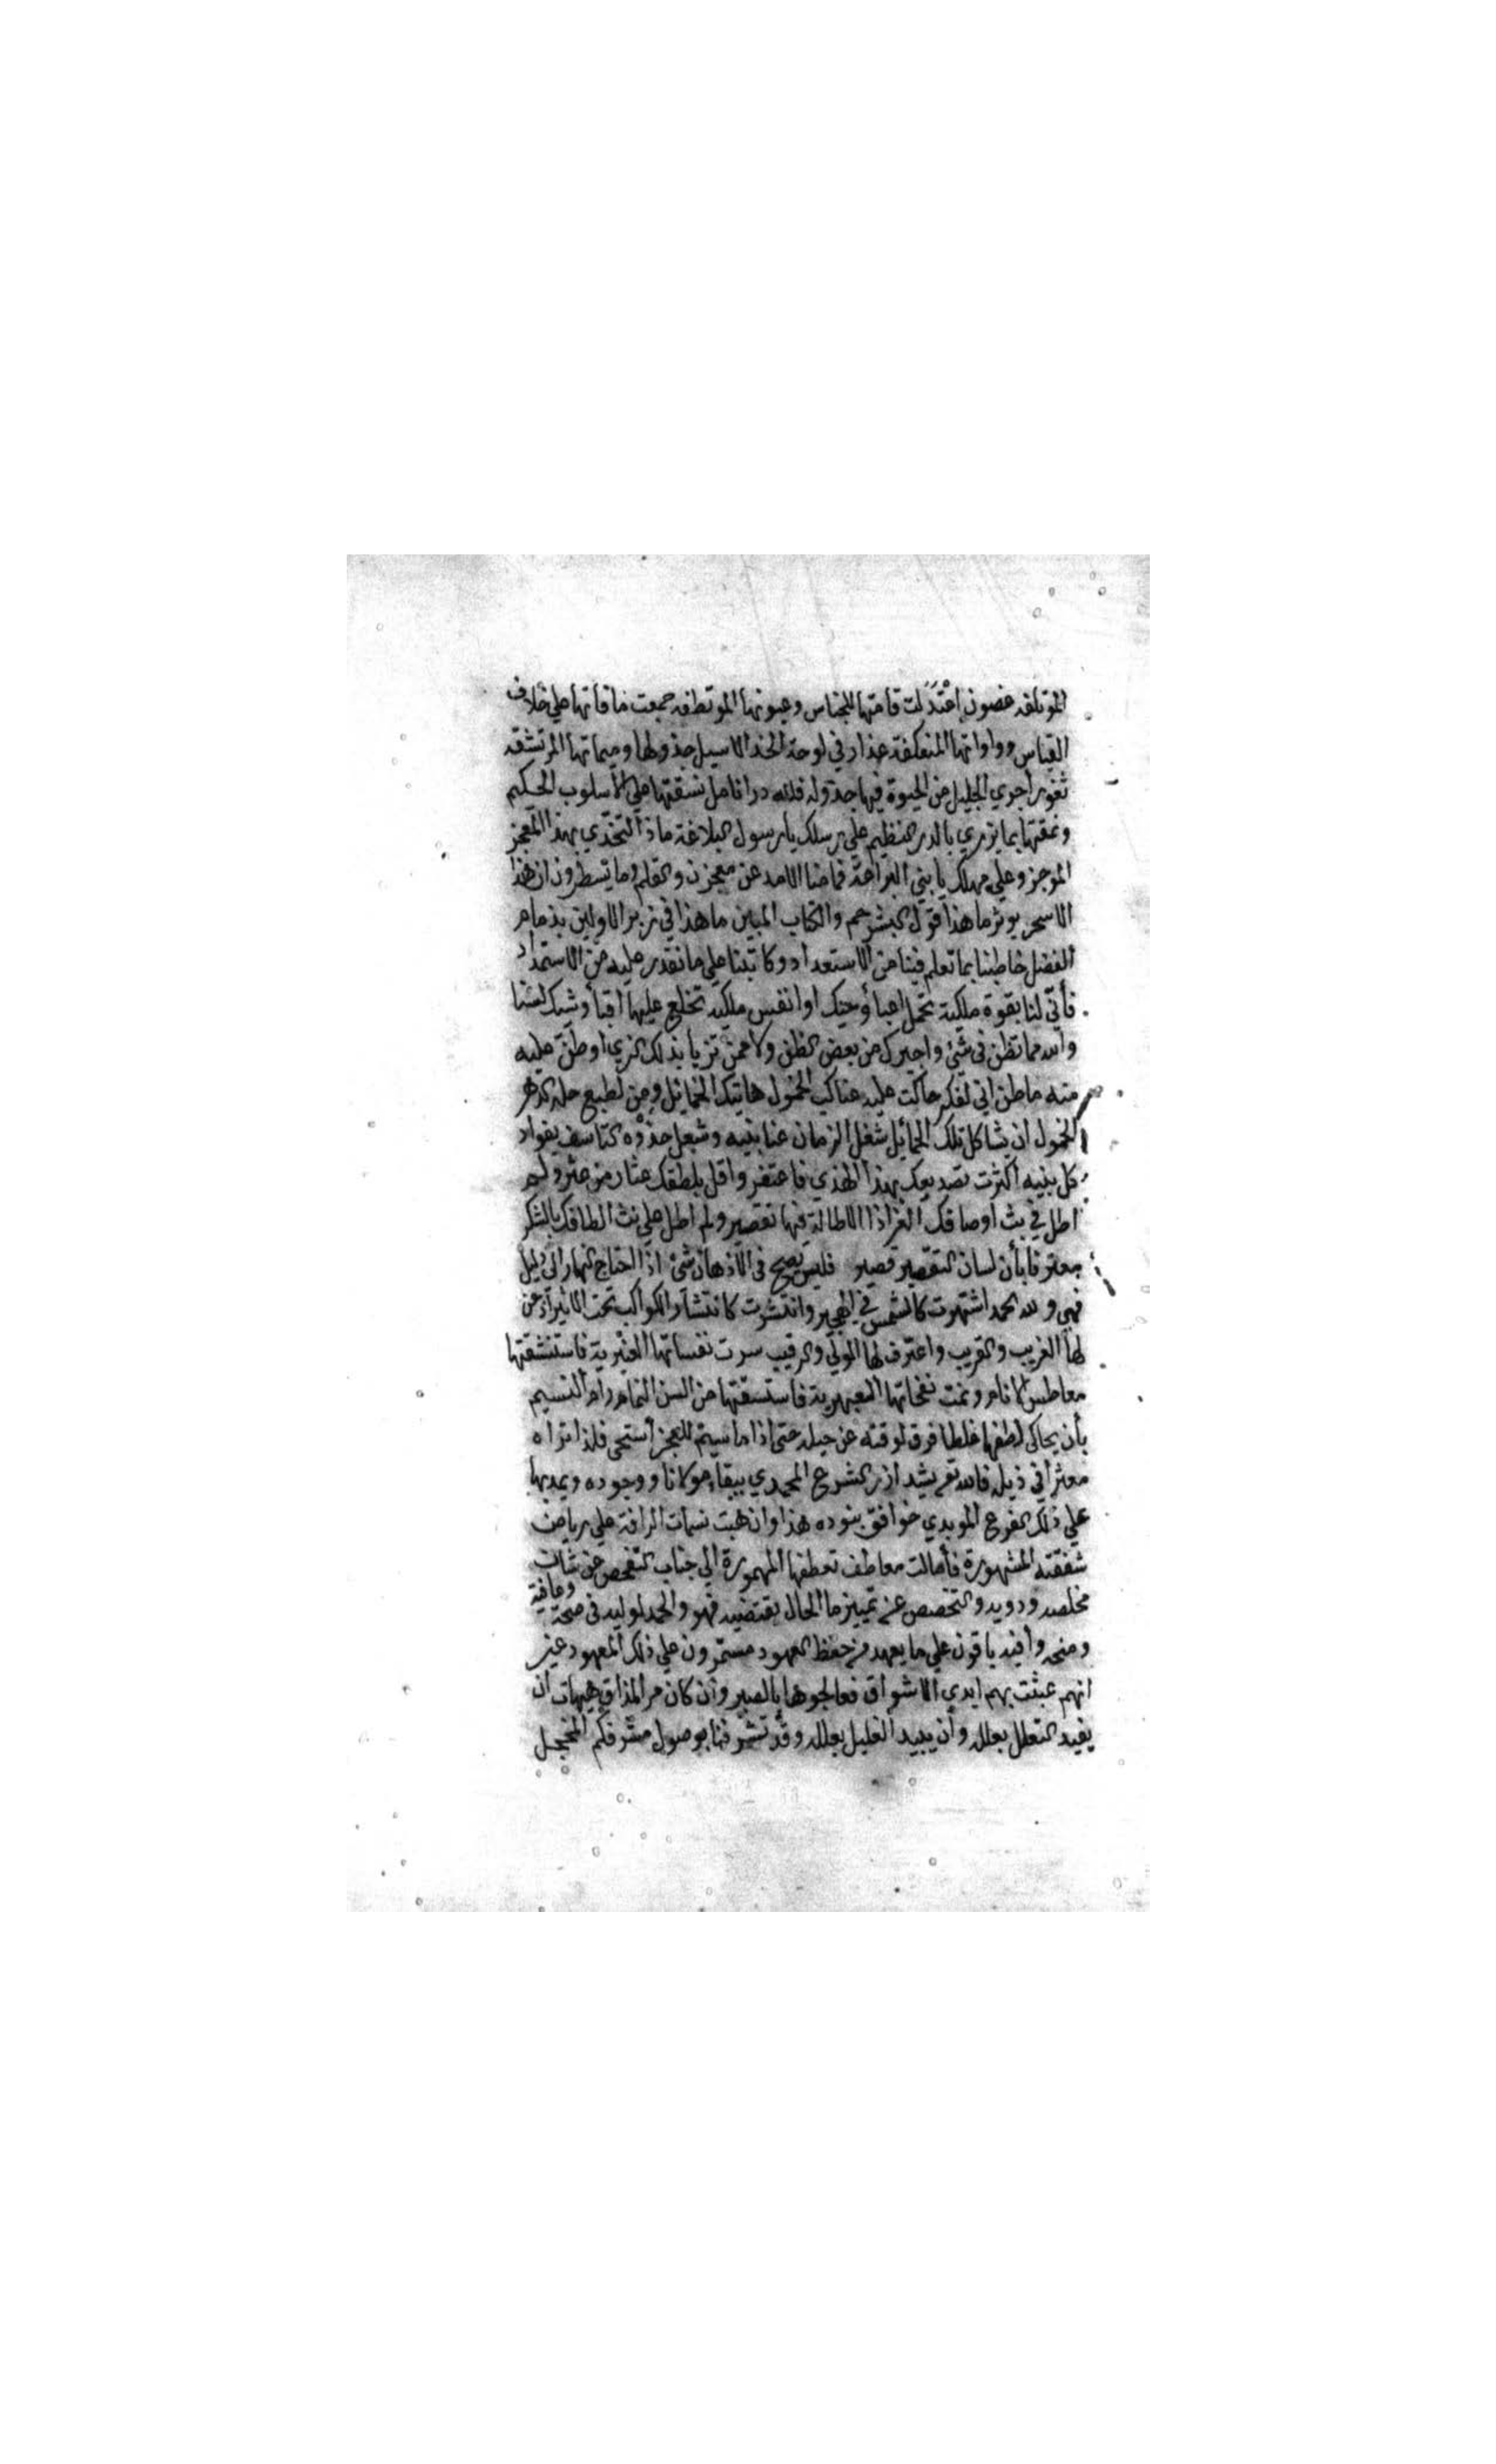 المؤتلفه غصون اعْتَدَلت قامتها للجناس وعيونها الموتطفه جمعت فاقاتها على خلاف
القياس وواواتها المنعكفة عذار في لوحة الخد الاسيل جدولها وميماتها المرتشفه
ثغور أجري الجليل من الحيوة فيها جدوله فلله در انامل نسقتها على الأسلوب الحكيم
ونمقتها بما يزري بالدر النظيم على رسلك يا رسول البلاغة ماذا التحدّي بهذا المعجز
الموجز وعلى مهلك يا بني البراعة فما هذا الامد عن معجز ن والقلم وما يسطرون ان هذا
الا سحر يوثر ما هذا قول البشر حم والكتاب المبين ما هذا في زبر الاولين بذمام
الفضل خاطبنا بما تعلم فينا من الاستعداد وكاتبنا على ما نقدر عليه من الاستمداد
فأنّى لنا بقوة ملكية تحمل اعباؤ وحيك او انفس ملكيه تخلع عليها اقبا وشيك لسنا
والله مما تظن في شئ واجيرك من بعض الظن ولا ممن تزيا بذلك الزي او ظنّ عليه
منه ما ظن اني لفكر حاكت عليه عناكب الخمول هاتيك الخمائل ومن لطبع حله الدهر
الخمول ان يشاكل تلك الحمائل شغل الزمان عنا بنيه وشعل جذوه التاسف بفواد
كل بنيه أكثرت تصديعك بهذا الهذي فاغتفر واقل بلطفك عثار من عثر ولم
اطل في بث اوصافك الغر اذ الاطالة فيها تقصير ولم اطل على نث الطافك بالشكر
معترفا بأن لسان التقصير قصير فليس يصح في الاذهان شئ اذا احتاج النهار الى دليل
فهي ولله الحمد اشتهرت كالشمس في الهجير وانتشرت كانتشار الكواكب تحت الاثير أذعن
لها الغريب والقريب واعترف لها المولي والرقيب سرت نفساتها العنبرية فاستنشقتها
معاطس الانام ونمت نفحاتها العبهرية فاستسقتها من السن النمام رام النسيم
بأن يحاكي لطفها غلطا فرق لوقته عن حيله حتى اذا ما سيم للعجز أستحى فلذا تراه
معثرا في ذيله فالله تعم يشد ازر الشرع المحمدي ببقاء مولانا ووجوده ويمد بها
على ذلك الفرع الموبدي خوافق بنوده هذا وان هبت نسمات الرافة على رياض
شفقته المشهورة فأمالت معاطف تعطفها المهمورة الى جناب التفحص عن شان
مخلصه ودويه والتخصص عن تمييز ما الحال يقتضيه فهو والحمد لوليه في صحة وعافية
ومنحه وأفيه باقون على ما يعهد من حفظ العهود مستمرون على ذلك المعهود غير
انهم عبثت بهم ايدي الاشواق فعالجوها بالصبر وان كان مر المذاق هيهات ان
يفيد التعلل بعلله وأن يبيد الغليل بعلله وقد تشرفنا بوصول مشرفكم المخجل